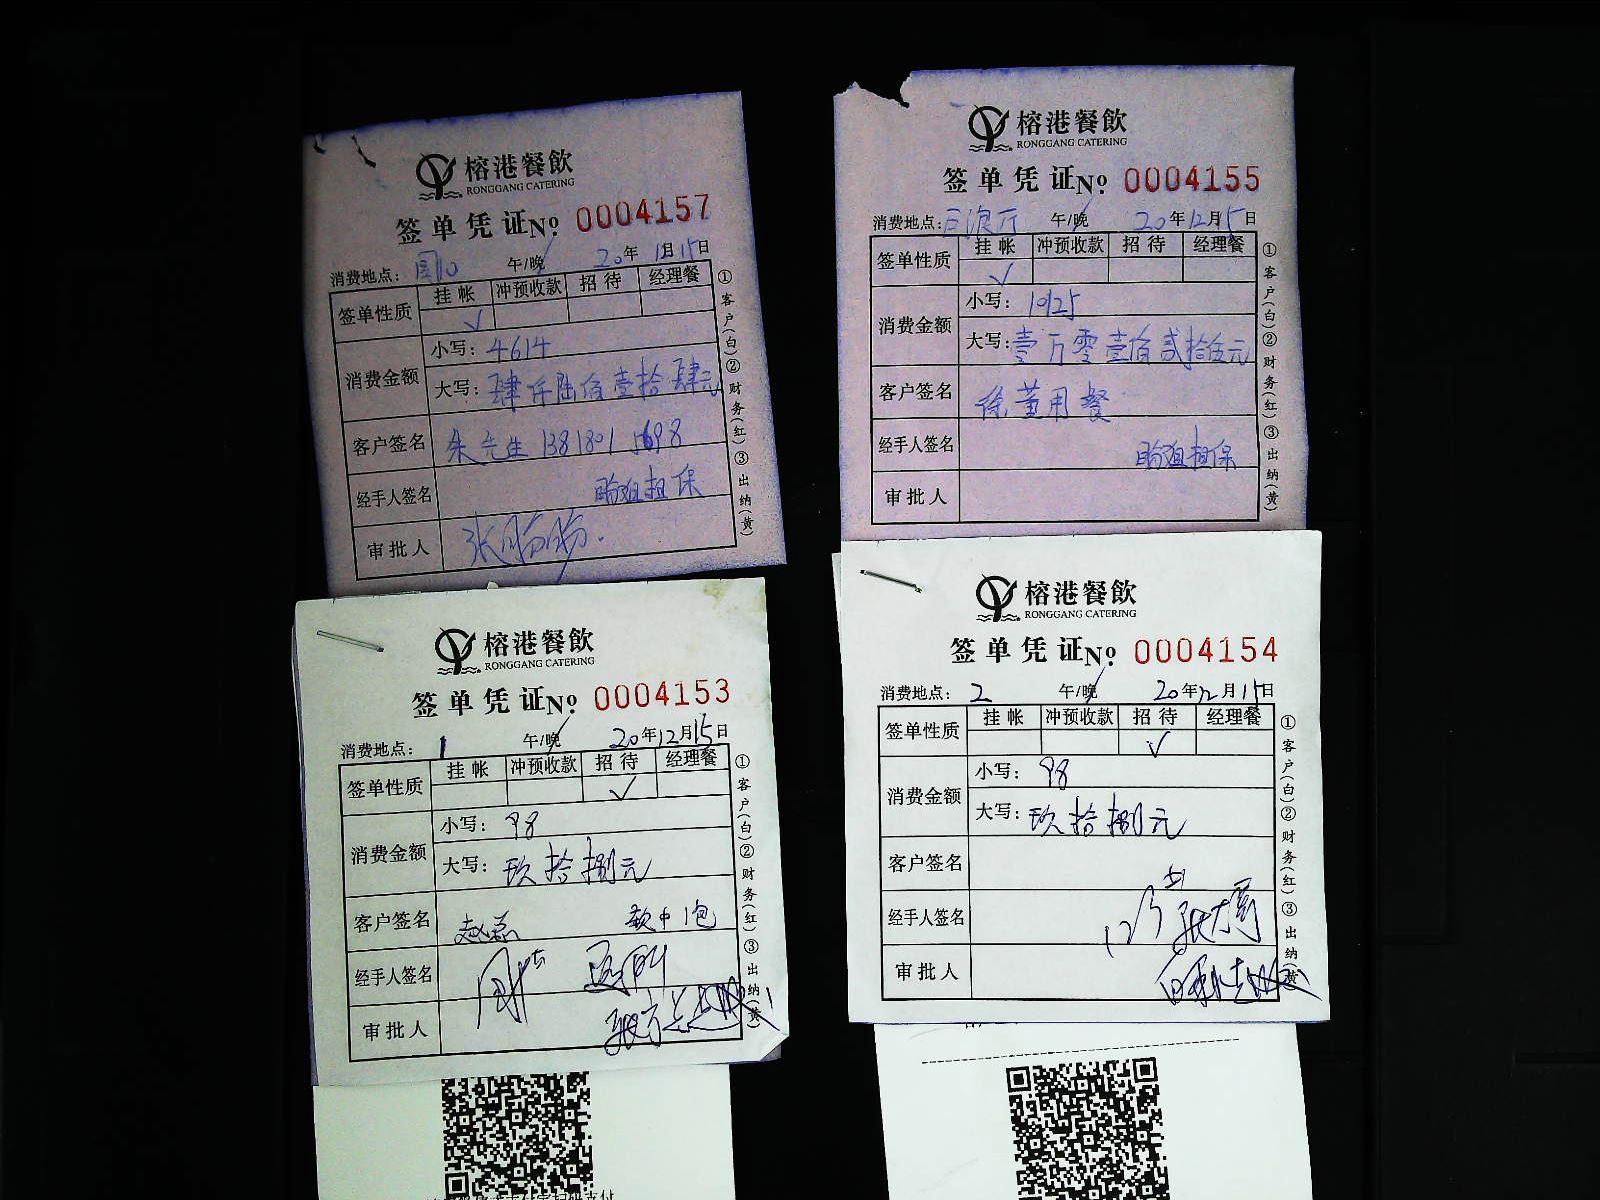 榕港餐飲
RONGGANG CATERING
签单凭证No. 0004157
消费地点: 国10 午/晚 20年12月15日
签单性质 挂帐 冲预收款 招待 经理餐
√
消费金额 小写: 4614
大写: 肆仟陆佰壹拾肆元
客户签名 朱先生 1381801
经手人签名 盼姐担保
审批人 张盼盼
①客户(白)②财务(红)③出纳(黄)
榕港餐飲
RONGGANG CATERING
签单凭证No. 0004155
消费地点: 午/晚 20年12月15日
签单性质 挂帐 冲预收款 招待 经理餐
√
消费金额 小写: 10125
大写: 壹万零壹佰贰拾伍元
客户签名 徐董用餐
经手人签名 盼姐担保
审批人
①客户(白)②财务(红)③出纳(黄)
榕港餐飲
RONGGANG CATERING
签单凭证No. 0004153
消费地点: 1 午/晚 20年12月15日
签单性质 挂帐 冲预收款 招待 经理餐
√
消费金额 小写: 98
大写: 玖拾捌元
客户签名 软中1包
经手人签名
审批人
①客户(白)②财务(红)③出纳(黄)
榕港餐飲
RONGGANG CATERING
签单凭证No. 0004154
消费地点: 2 午/晚 20年12月15日
签单性质 挂帐 冲预收款 招待 经理餐
√
消费金额 小写: 98
大写: 玖拾捌元
客户签名
经手人签名
审批人
①客户(白)②财务(红)③出纳(黄)